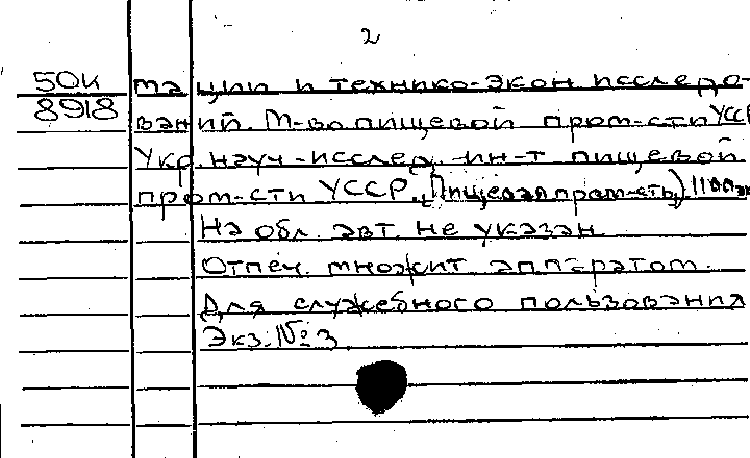 2
50к
8918
ции и технико-экон. исследо-
ваний. М-во пищевой пром-сти УССР
Укр. науч.-исслед. ин-т пищевой
пром-сти УССР. (Пищевая пром-сть)
На обл. авт. не указан.
Отпеч. множит. аппаратом.
Для служебного пользования
Экз. № 3